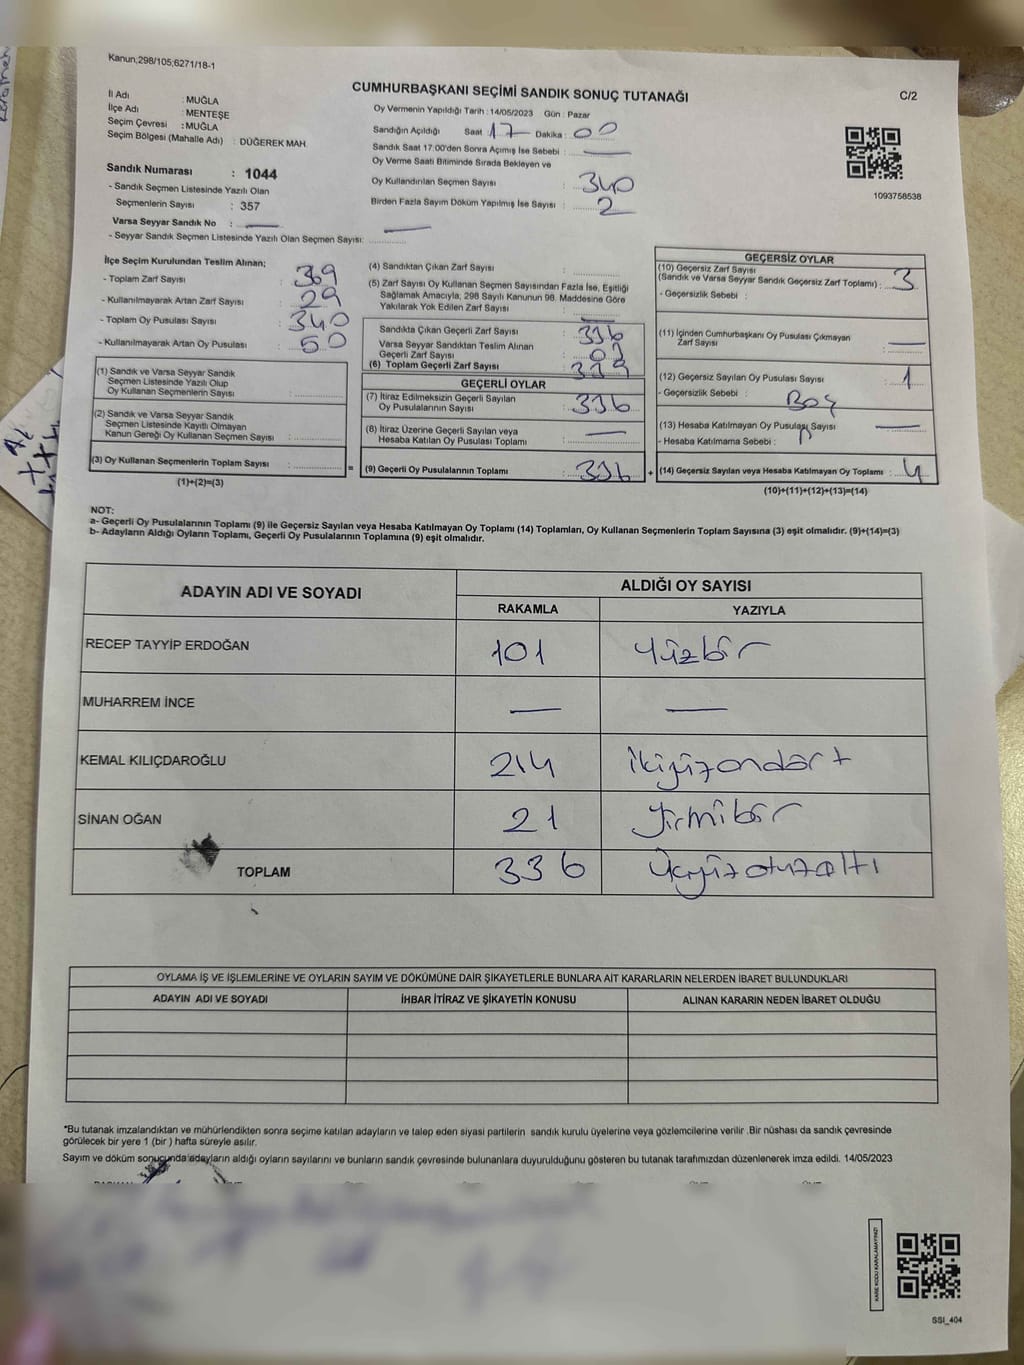 Kanun;298/105;6271/18-1
CUMHURBAŞKANI SEÇİMİ SANDIK SONUÇ TUTANAĞI
C/2
İl Adı : MUĞLA
İlçe Adı : MENTEŞE
Seçim Çevresi : MUĞLA
Seçim Bölgesi (Mahalle Adı) : DÜĞEREK MAH.
Sandık Numarası : 1044
- Sandık Seçmen Listesinde Yazılı Olan
Seçmenlerin Sayısı : 357
Varsa Seyyar Sandık No :
- Seyyar Sandık Seçmen Listesinde Yazılı Olan Seçmen Sayısı:
Oy Vermenin Yapıldığı Tarih : 14/05/2023 Gün : Pazar
Sandığın Açıldığı Saat : 17 Dakika : 00
Sandık Saat 17:00'den Sonra Açmış İse Sebebi :
Oy Verme Saati Bitiminde Sırada Bekleyen ve
Oy Kullandırılan Seçmen Sayısı : 340
Birden Fazla Sayım Döküm Yapılmış İse Sayısı : 2
1093758538
İlçe Seçim Kurulundan Teslim Alınan;
- Toplam Zarf Sayısı : 369
- Kullanılmayarak Artan Zarf Sayısı : 29
- Toplam Oy Pusulası Sayısı : 340
- Kullanılmayarak Artan Oy Pusulası : 50
(1) Sandık ve Varsa Seyyar Sandık
Seçmen Listesinde Yazılı Olup
Oy Kullanan Seçmenlerin Sayısı :
(2) Sandık ve Varsa Seyyar Sandık
Seçmen Listesinde Kayıtlı Olmayan
Kanun Gereği Oy Kullanan Seçmen Sayısı :
(3) Oy Kullanan Seçmenlerin Toplam Sayısı :
(1)+(2)=(3)
(4) Sandıktan Çıkan Zarf Sayısı :
(5) Zarf Sayısı Oy Kullanan Seçmen Sayısından Fazla İse, Eşitliği
Sağlamak Amacıyla, 298 Sayılı Kanunun 98. Maddesine Göre
Yakılarak Yok Edilen Zarf Sayısı :
Sandıkta Çıkan Geçerli Zarf Sayısı : 336
Varsa Seyyar Sandıktan Teslim Alınan
Geçerli Zarf Sayısı :
(6) Toplam Geçerli Zarf Sayısı :
GEÇERLİ OYLAR
(7) İtiraz Edilmeksizin Geçerli Sayılan
Oy Pusulalarının Sayısı : 336
(8) İtiraz Üzerine Geçerli Sayılan veya
Hesaba Katılan Oy Pusulası Toplamı :
= (9) Geçerli Oy Pusulalarının Toplamı : 336 +
GEÇERSİZ OYLAR
(10) Geçersiz Zarf Sayısı
(Sandık ve Varsa Seyyar Sandık Geçersiz Zarf Toplamı) : 3
- Geçersizlik Sebebi :
(11) İçinden Cumhurbaşkanı Oy Pusulası Çıkmayan
Zarf Sayısı :
(12) Geçersiz Sayılan Oy Pusulası Sayısı : 1
- Geçersizlik Sebebi : Boş
(13) Hesaba Katılmayan Oy Pusulası Sayısı :
- Hesaba Katılmama Sebebi :
(14) Geçersiz Sayılan veya Hesaba Katılmayan Oy Toplamı : 4
(10)+(11)+(12)+(13)=(14)
NOT:
a- Geçerli Oy Pusulalarının Toplamı (9) ile Geçersiz Sayılan veya Hesaba Katılmayan Oy Toplamı (14) Toplamları, Oy Kullanan Seçmenlerin Toplam Sayısına (3) eşit olmalıdır. (9)+(14)=(3)
b- Adayların Aldığı Oyların Toplamı, Geçerli Oy Pusulalarının Toplamına (9) eşit olmalıdır.
ADAYIN ADI VE SOYADI ALDIĞI OY SAYISI
RAKAMLA YAZIYLA
RECEP TAYYİP ERDOĞAN 101 Yüzbir
MUHARREM İNCE
KEMAL KILIÇDAROĞLU 214 ikiyüzondört
SİNAN OĞAN 21 Yirmibir
TOPLAM 336 Üçyüzotuzaltı
OYLAMA İŞ VE İŞLEMLERİNE VE OYLARIN SAYIM VE DÖKÜMÜNE DAİR ŞİKAYETLERLE BUNLARA AİT KARARLARIN NELERDEN İBARET BULUNDUKLARI
ADAYIN ADI VE SOYADI İHBAR İTİRAZ VE ŞİKAYETİN KONUSU ALINAN KARARIN NEDEN İBARET OLDUĞU
*Bu tutanak imzalandıktan ve mühürlendikten sonra seçime katılan adayların ve talep eden siyasi partilerin sandık kurulu üyelerine veya gözlemcilerine verilir .Bir nüshası da sandık çevresinde
görülecek bir yere 1 (bir ) hafta süreyle asılır.
Sayım ve döküm sonucunda adayların aldığı oyların sayılarını ve bunların sandık çevresinde bulunanlara duyurulduğunu gösteren bu tutanak tarafımızdan düzenlenerek imza edildi. 14/05/2023
KARE KODU KARALAMAYINIZ!
SSI_404